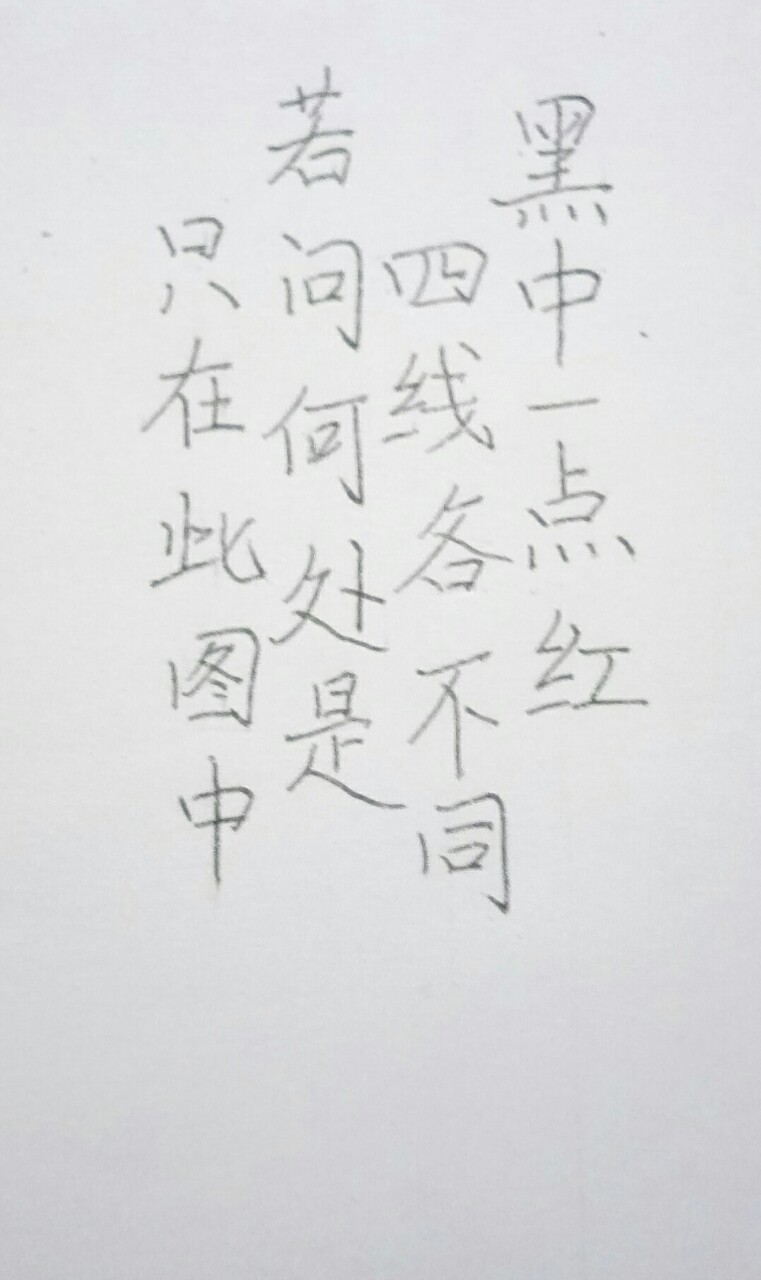 黑中一点红
四线各不同
若问何处是
只在此图中